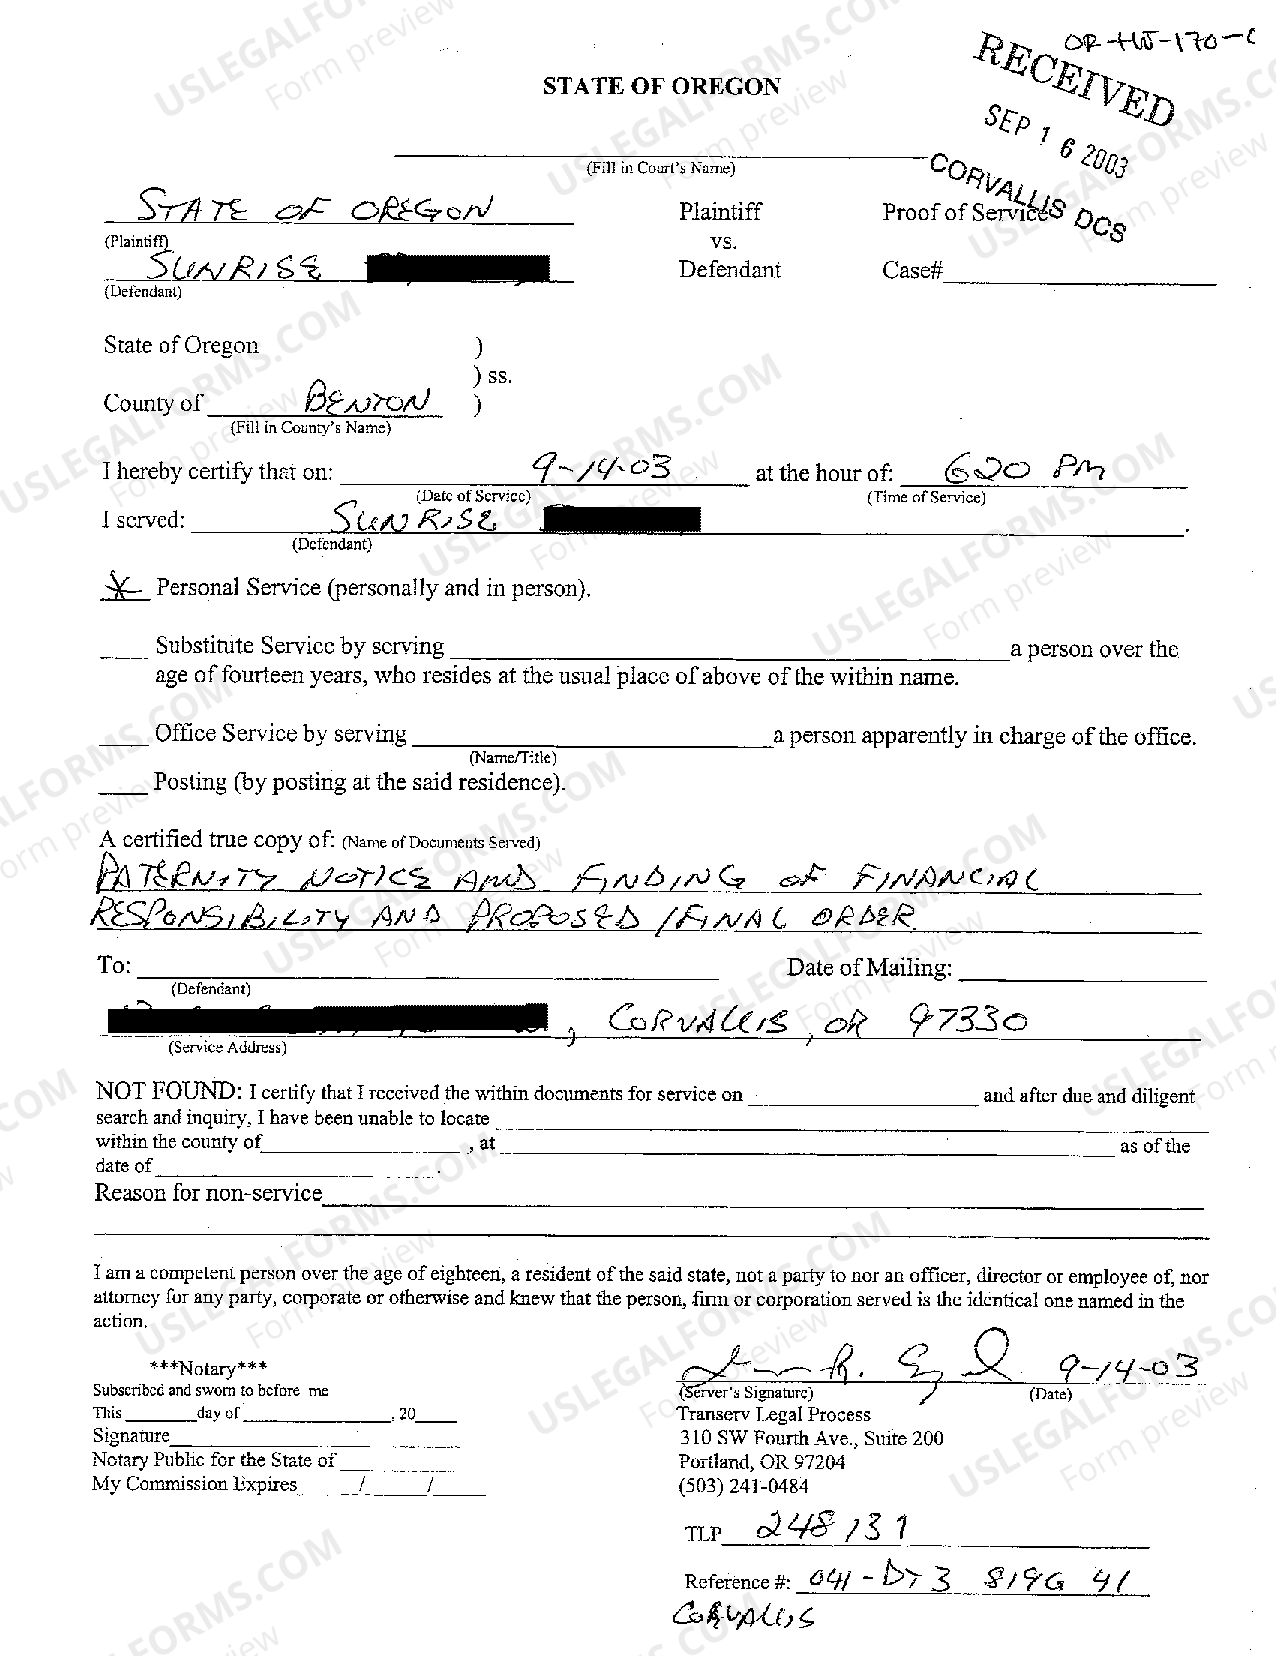 OR-HJ-170-C
STATE OF OREGON
RECEIVED
SEP 16 2003
CORVALLIS DCS
(Fill in Court's Name)
STATE OF OREGON Plaintiff Proof of Service
(Plaintiff) vs.
SUNRISE Defendant Case#
(Defendant)
State of Oregon )
) ss.
County of BENTON )
(Fill in County's Name)
I hereby certify that on: 9-14-03 at the hour of: 620 PM
(Date of Service) (Time of Service)
I served: SUNRISE .
(Defendant)
X Personal Service (personally and in person).
Substitute Service by serving a person over the
age of fourteen years, who resides at the usual place of above of the within name.
Office Service by serving a person apparently in charge of the office.
(Name/Title)
Posting (by posting at the said residence).
A certified true copy of: (Name of Documents Served)
PATERNITY NOTICE AND FINDING OF FINANCIAL
RESPONSIBILITY AND PROPOSED/FINAL ORDER
To: Date of Mailing:
(Defendant)
, CORVALLIS, OR 97330
(Service Address)
NOT FOUND: I certify that I received the within documents for service on and after due and diligent
search and inquiry, I have been unable to locate
within the county of , at as of the
date of .
Reason for non-service
I am a competent person over the age of eighteen, a resident of the said state, not a party to nor an officer, director or employee of, nor
attorney for any party, corporate or otherwise and knew that the person, firm or corporation served is the identical one named in the
action.
***Notary*** 9-14-03
Subscribed and sworn to before me (Server's Signature) (Date)
This day of , 20 Transerv Legal Process
Signature 310 SW Fourth Ave., Suite 200
Notary Public for the State of Portland, OR 97204
My Commission Expires / / (503) 241-0484
TLP 248131
Reference #: 041-DT3 819G 41
CORVALLIS
USLEGALFORMS.COM
Form preview